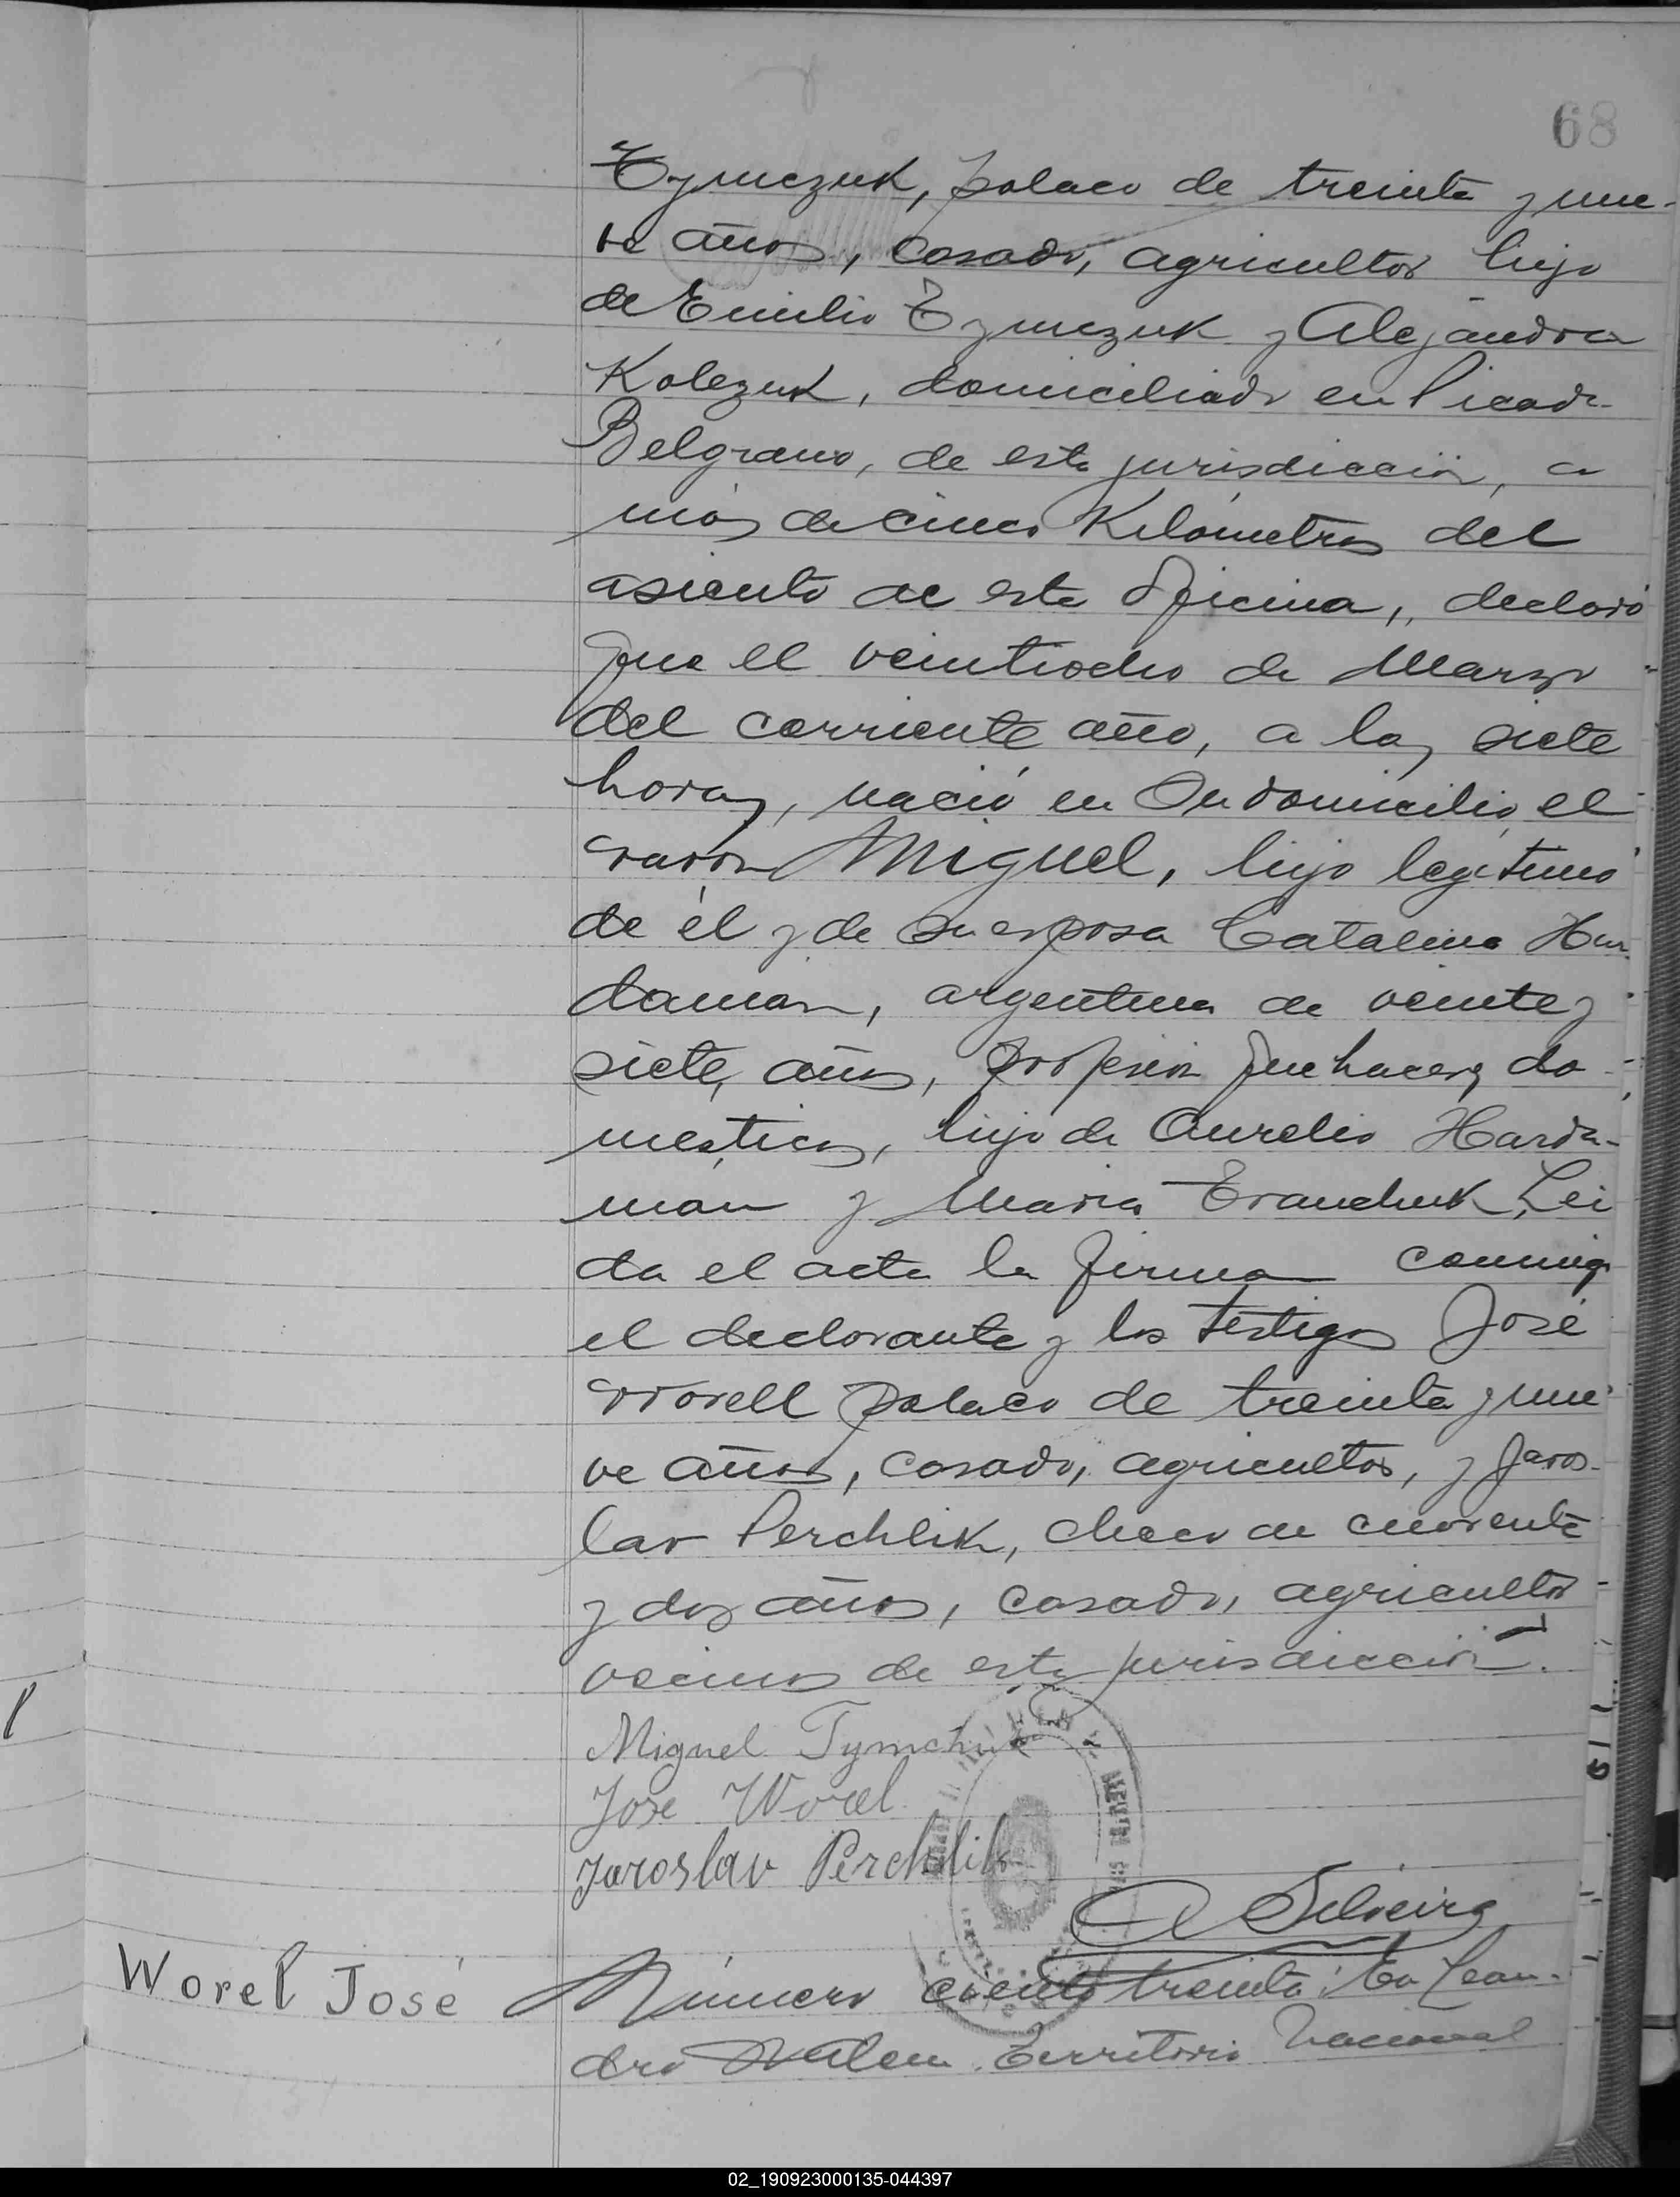 68
Tymczuk, polaco de treinta y nue-
ve años, casado, agricultor hijo
de Emilio Tymczuk y Alejandra
Kolczuk, domiciliado en Picada
Belgrano, de esta jurisdicción, a
más de cinco Kilómetros del
asiento de esta Oficina, declaró
que el veintiocho de Marzo
del corriente año, a las siete
horas, nació en su domicilio el
varón Miguel, hijo legítimo
de él y de su esposa Catalina Har-
daman, argentina de veinte y
siete años, profesión quehaceres do-
mésticos, hija de Aurelio Harda-
man y Maria Eranchuk Lei
da el acta la firman conmigo
el declarante y los testigos José
Worell polaco de treinta y nue
ve años, casado, agricultor, y Jaros-
lav Perchlik, checo de cuarenta
y dos años, casado, agricultor
vecinos de esta jurisdicción.
Miguel Tymchuk
Jose Worel
Jaroslav Perchlik
A Silveira
Worel José
Número ciento treinta: En Lean-
dro N Alem Territorio Nacional
02_190923000135-044397